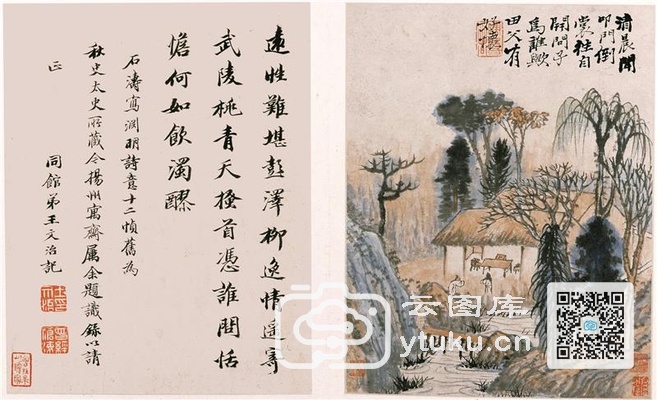 清晨聞
叩門倒
裳往自
開問子
為誰歟
田父有
遠性難堪彭澤柳逸情遥寄
武陵桃青天搔首憑誰闊恬
憺何如飲濁醪
石濤寫淵明詩意十二幀舊為
秋史太史所藏今揚州寓齋屬余題識錄以請
正
同館弟王文治記
云图库
ytuku.cn